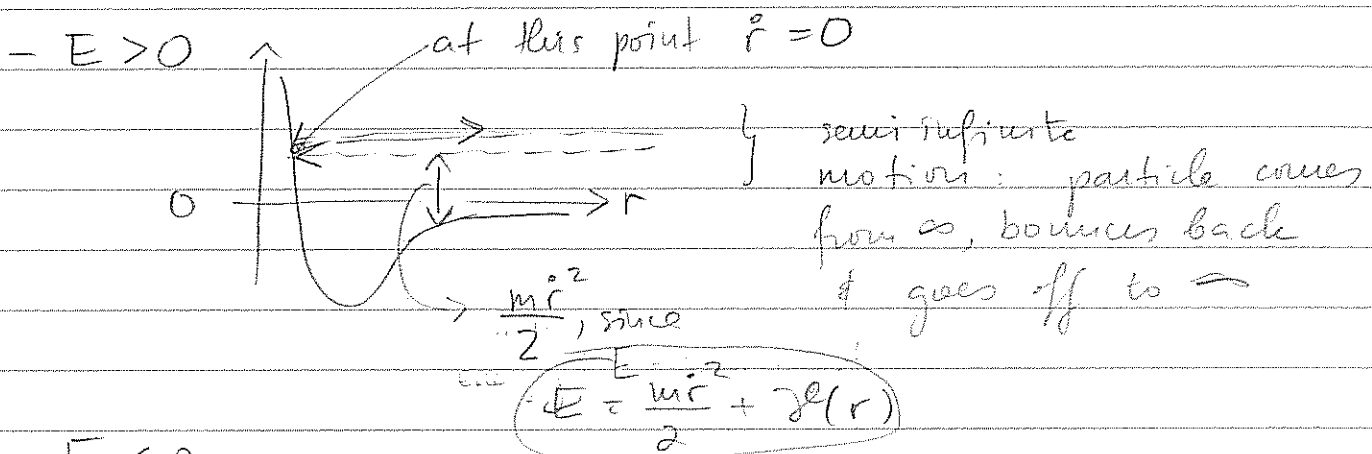 - E > 0
at this point ṙ = 0
semi infinite
motion : particle comes
from ∞, bounces back
& goes off to ∞
0
r
mṙ²/2, since
E = mṙ²/2 + (r)
E < 0